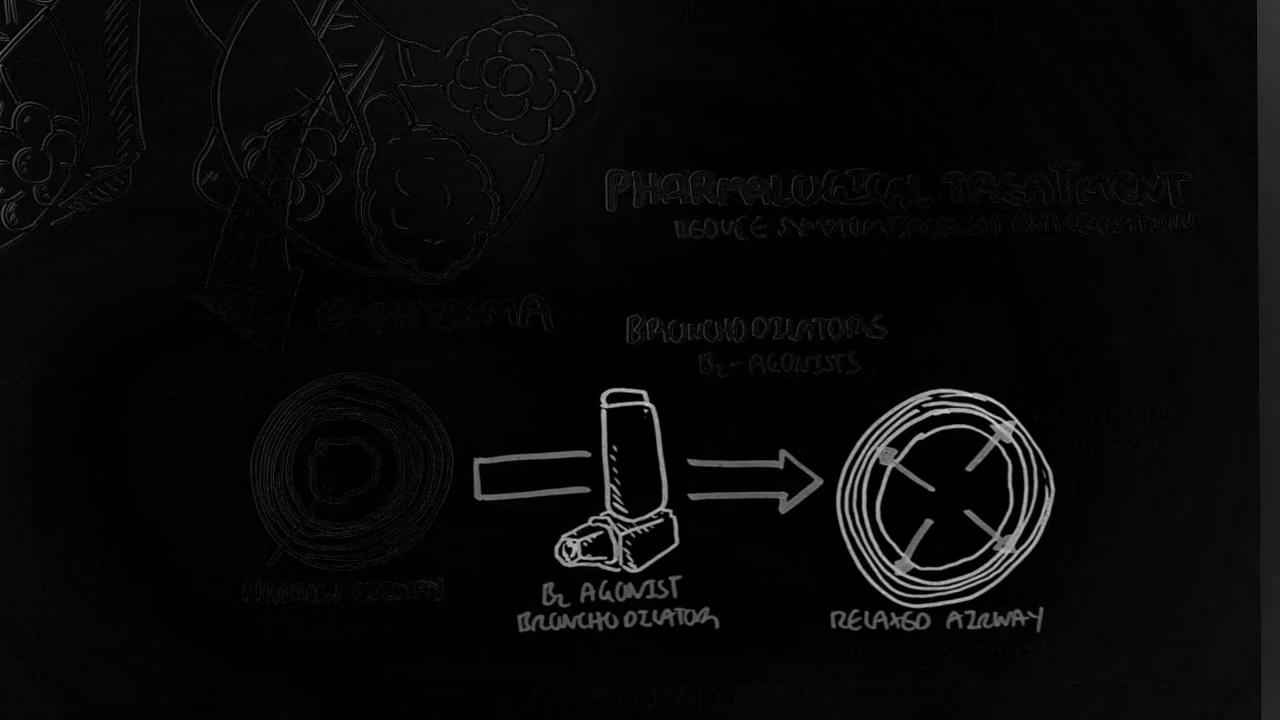 PHARMALOGICAL TREATMENT
REDUCE SYMPTOMS, PREVENT EXACERBATION
EMPHYSEMA
BRONCHODILATORS
B₂-AGONISTS
NARROW AIRWAY
B₂ AGONIST
BRONCHODILATOR
RELAXED AIRWAY